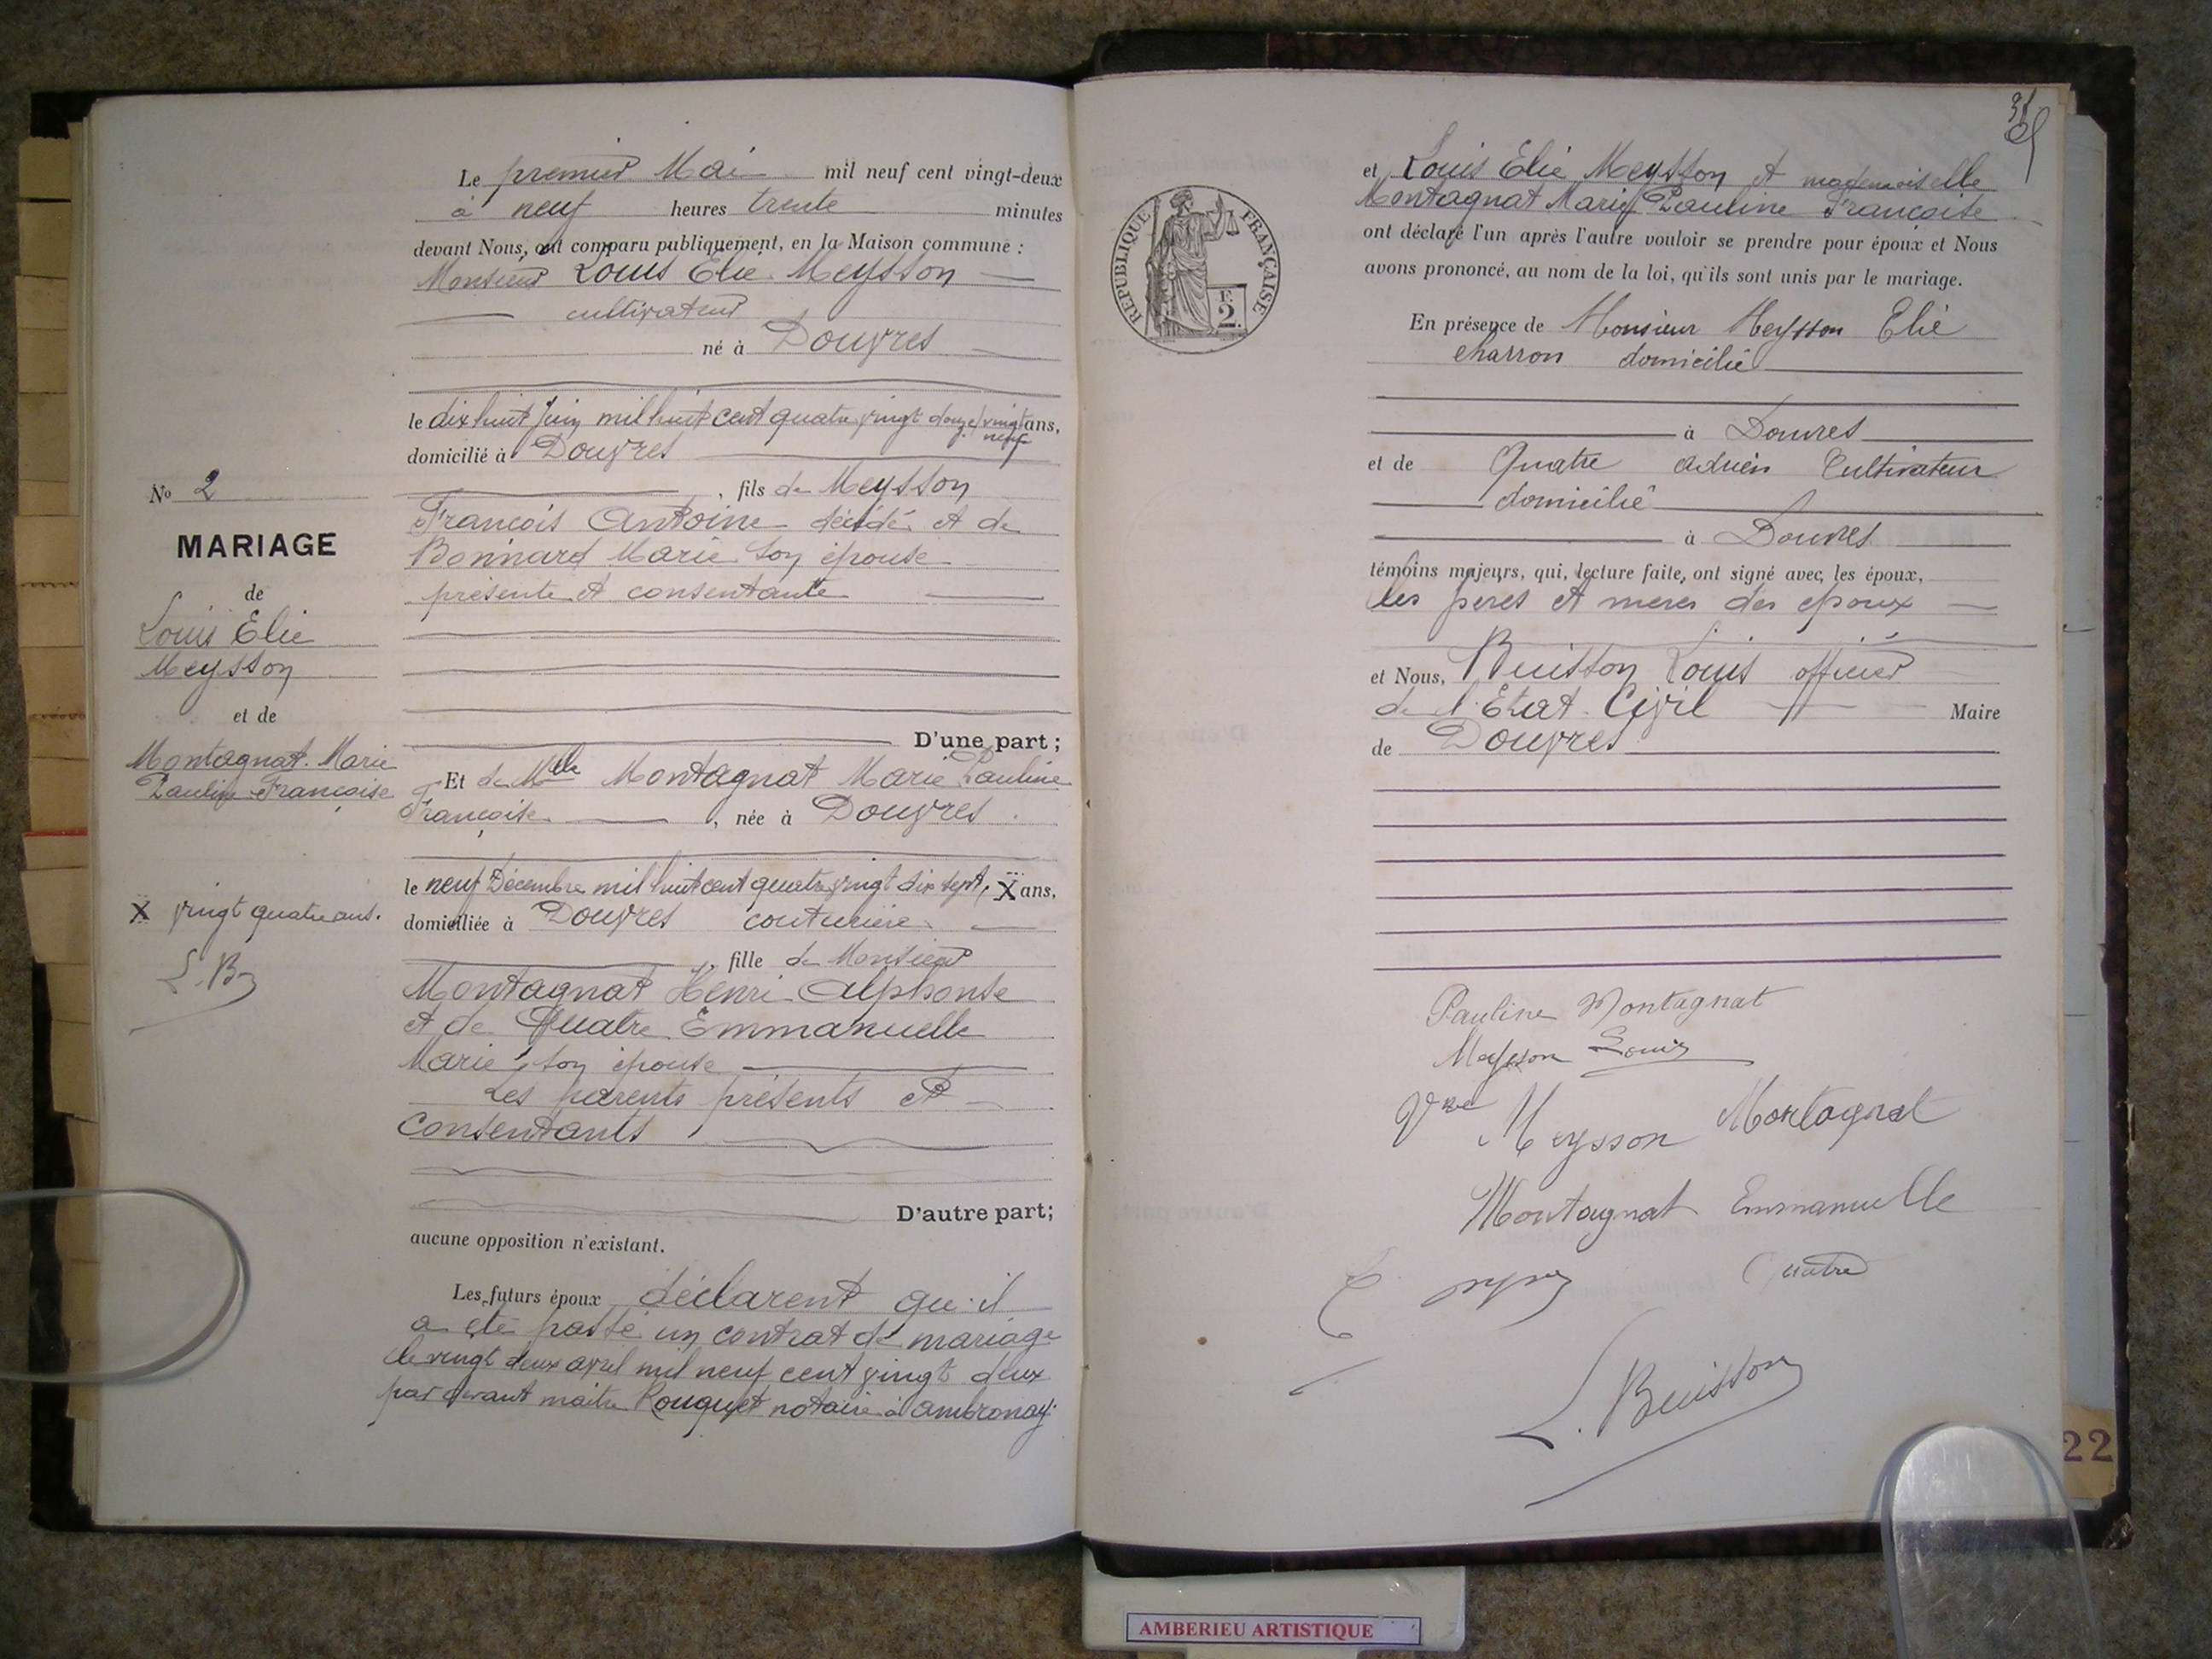 Le premier Mai mil neuf cent vingt-deux
à neuf heures trente minutes
devant Nous, ont comparu publiquement, en la Maison commune :
Monsieur Louis Elie Meysson
cultivateur
né à Douvres
le dix huit Juin mil huit cent quatre vingt douze, vingt neuf ans,
domicilié à Douvres
, fils de Meysson
François Antoine décédé et de
Bonnard Marie son épouse
présente et consentante
D'une part ;
Et de Mlle Montagnat Marie Pauline
Françoise , née à Douvres
le neuf Décembre mil huit cent quatre vingt dix sept, X ans,
domiciliée à Douvres couturière
, fille de Monsieur
Montagnat Henri Alphonse
et de Quatre Emmanuelle
Marie, son épouse
Les parents présents et
consentants
D'autre part;
aucune opposition n'existant.
Les futurs époux déclarent qu'il
a été passé un contrat de mariage
le vingt deux avril mil neuf cent vingt deux
par devant maitre Rouquet notaire à ambronay
No 2
MARIAGE
de
Louis Elie
Meysson
et de
Montagnat Marie
Pauline Françoise
X vingt quatre ans.
L. B
RÉPUBLIQUE FRANÇAISE
F.
2.
et Louis Elie Meysson et mademoiselle
Montagnat Marie Pauline Françoise
ont déclaré l'un après l'autre vouloir se prendre pour époux et Nous
avons prononcé, au nom de la loi, qu'ils sont unis par le mariage.
En présence de Monsieur Meysson Elie
charron domicilié
à Douvres
et de Quatre Adrien Cultivateur
domicilié
à Douvres
témoins majeurs, qui, lecture faite, ont signé avec les époux,
les pères et mères des époux
et Nous, Buisson Louis officier
de l'Etat Civil Maire
de Douvres
Pauline Montagnat
Meysson Louis
Vve Meysson Montagnat
Montagnat Emmanuelle
Quatre
L. Buisson
22
AMBERIEU ARTISTIQUE